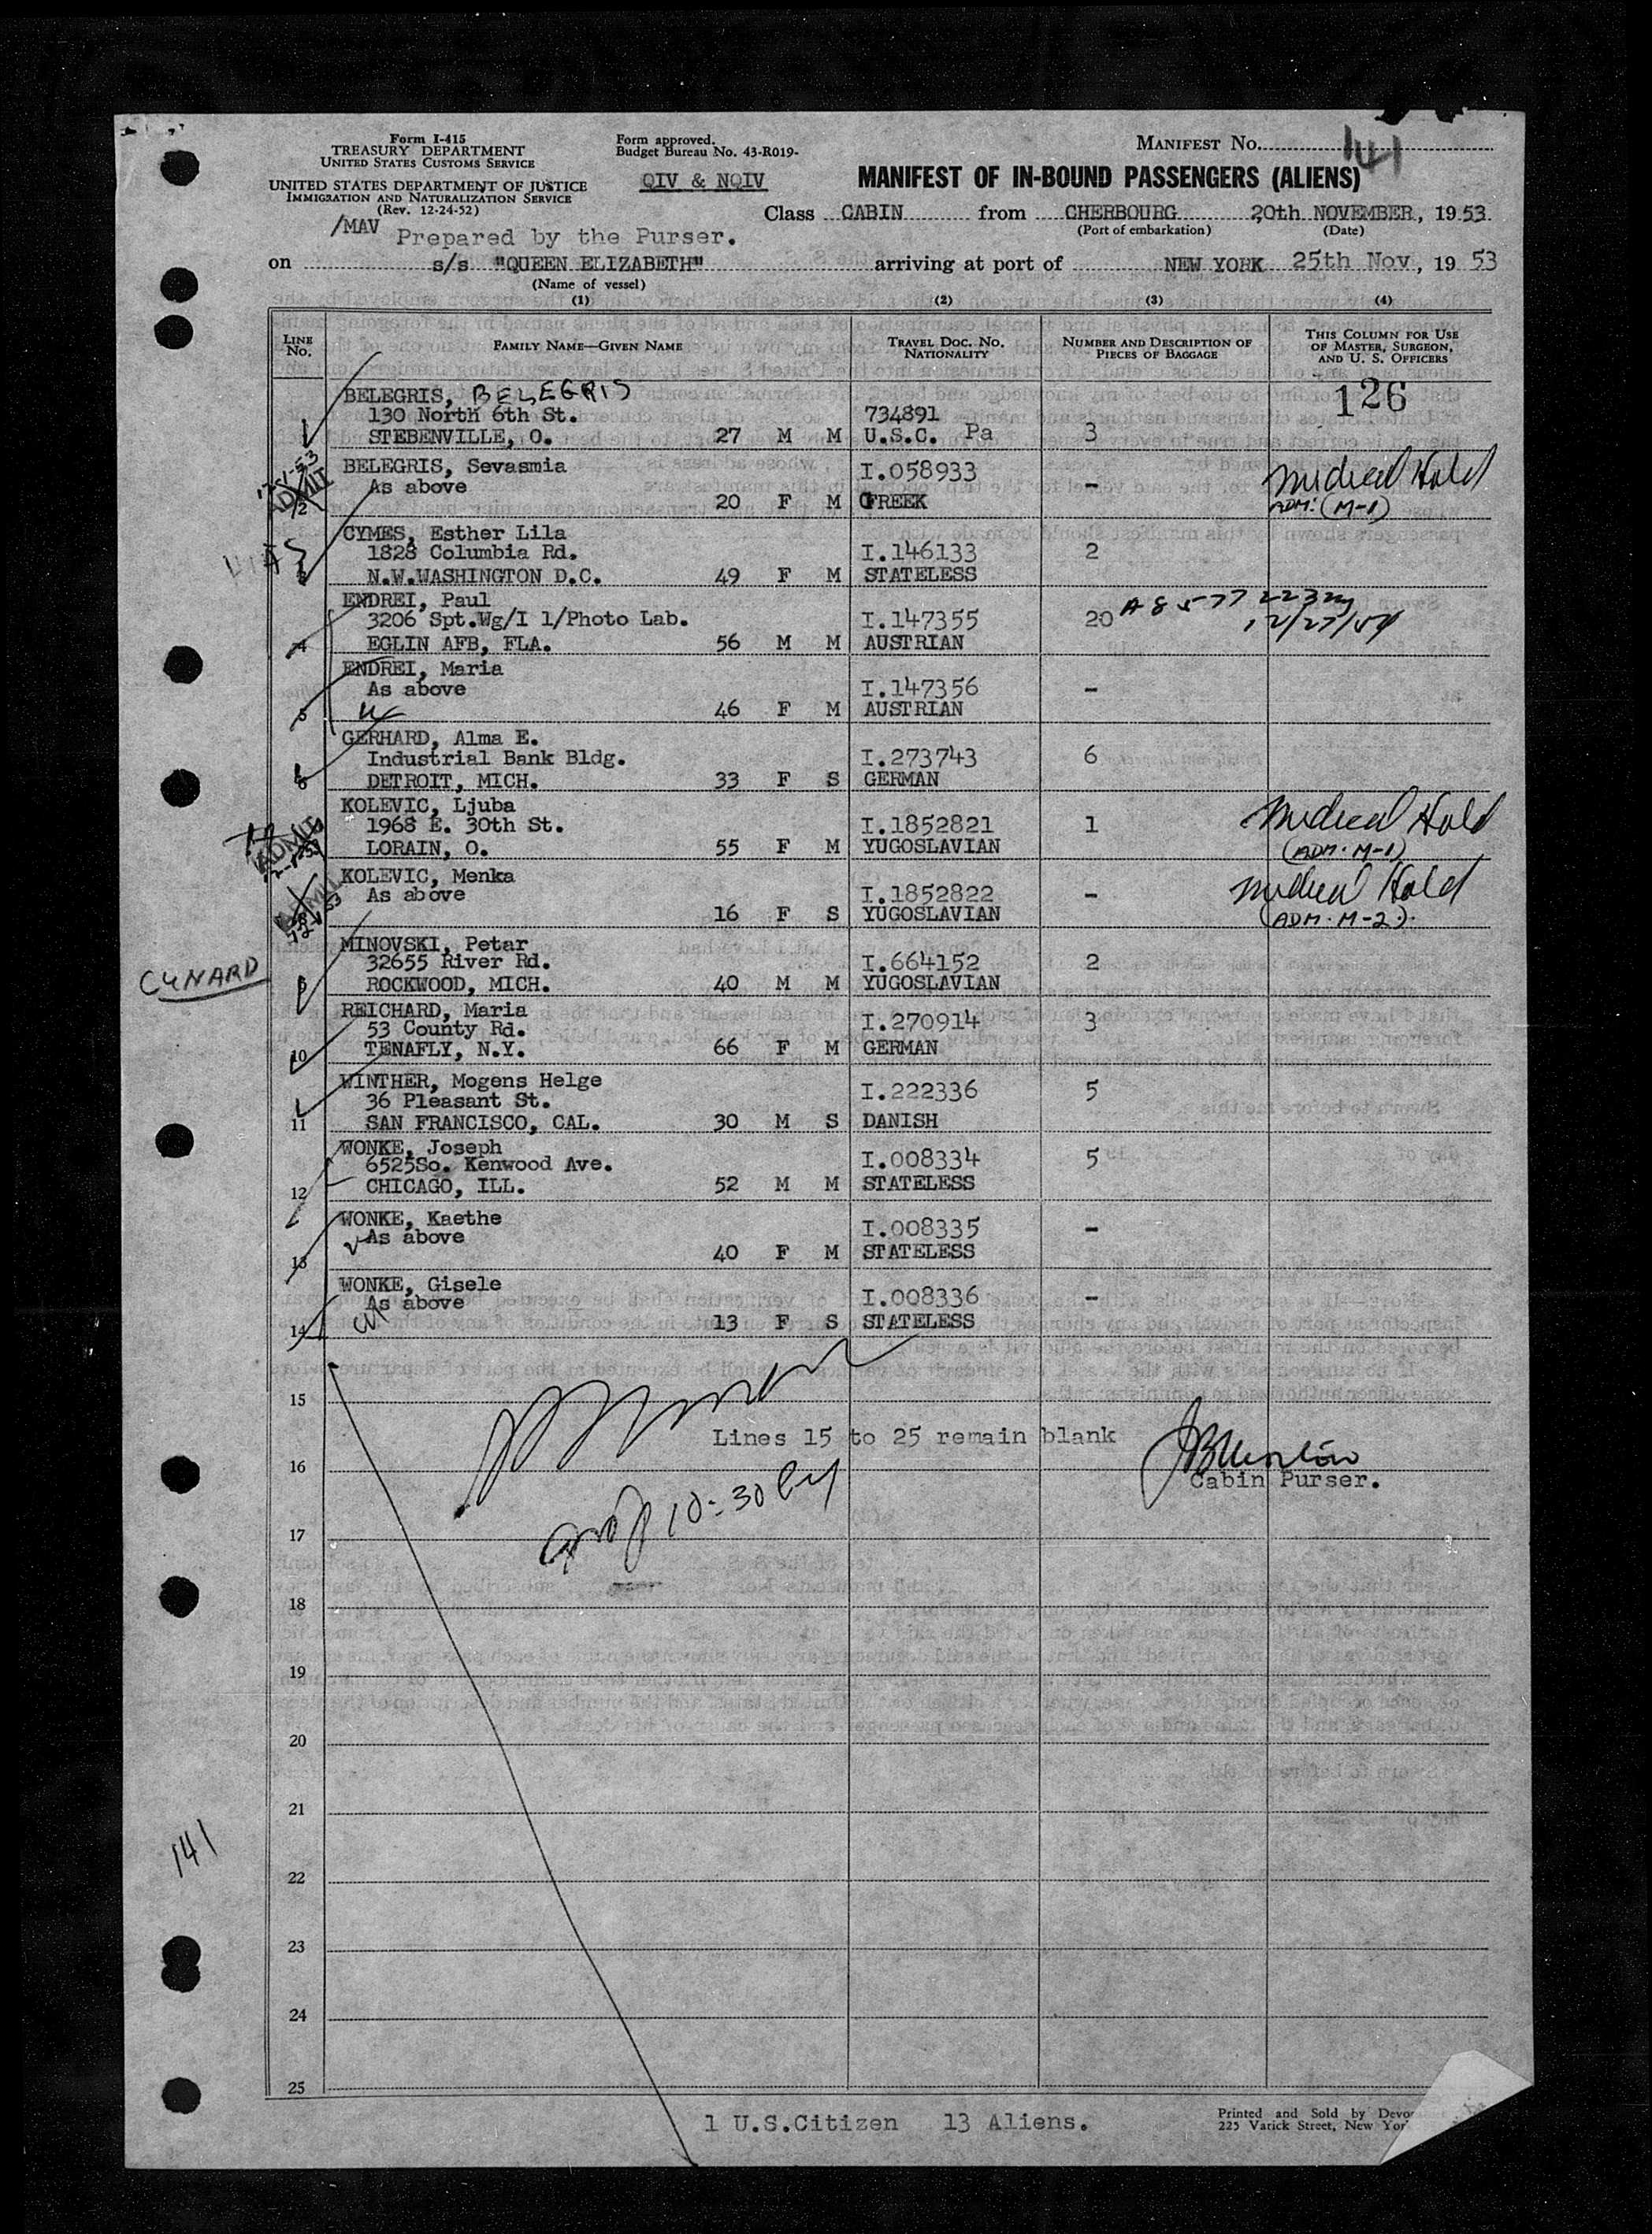 Form I-415
TREASURY DEPARTMENT
UNITED STATES CUSTOMS SERVICE
UNITED STATES DEPARTMENT OF JUSTICE
IMMIGRATION AND NATURALIZATION SERVICE
(Rev. 12-24-52)
Form approved.
Budget Bureau No. 43-R019-
QIV & NQIV
MANIFEST NO. 141
MANIFEST OF IN-BOUND PASSENGERS (ALIENS)
Class CABIN from CHERBOURG 20th NOVEMBER, 1953.
(Port of embarkation) (Date)
/MAV Prepared by the Purser.
on s/s "QUEEN ELIZABETH" arriving at port of NEW YORK 25th Nov, 19 53
(Name of vessel)
(1) (2) (3) (4)
LINE NO. FAMILY NAME—GIVEN NAME TRAVEL DOC. NO. NATIONALITY NUMBER AND DESCRIPTION OF PIECES OF BAGGAGE THIS COLUMN FOR USE OF MASTER, SURGEON, AND U. S. OFFICERS
126
BELEGRIS, BELEGRIS
130 North 6th St. 734891
1 STEBENVILLE, O. 27 M M U.S.C. Pa 3
BELEGRIS, Sevasmia I.058933 Medical Hold
As above
ADMIT
2 20 F M GREEK - ADM: (M-1)
CYMES, Esther Lila
1828 Columbia Rd. I.146133 2
3 N.W.WASHINGTON D.C. 49 F M STATELESS
ENDREI, Paul A8577223
3206 Spt.Wg/I 1/Photo Lab. I.147355 20 12/27/54
4 EGLIN AFB, FLA. 56 M M AUSTRIAN
ENDREI, Maria
As above I.147356 -
5 46 F M AUSTRIAN
GERHARD, Alma E.
Industrial Bank Bldg. I.273743 6
6 DETROIT, MICH. 33 F S GERMAN
KOLEVIC, Ljuba Medical Hold
1968 E. 30th St. I.1852821 1
ADMIT LORAIN, O. 55 F M YUGOSLAVIAN (ADM. M-1)
KOLEVIC, Menka Medical Hold
As above I.1852822 -
16 F S YUGOSLAVIAN (ADM. M-2).
MINOVSKI, Petar
32655 River Rd. I.664152 2
CUNARD
9 ROCKWOOD, MICH. 40 M M YUGOSLAVIAN
REICHARD, Maria
53 County Rd. I.270914 3
10 TENAFLY, N.Y. 66 F M GERMAN
WINTHER, Mogens Helge
36 Pleasant St. I.222336 5
11 SAN FRANCISCO, CAL. 30 M S DANISH
WONKE, Joseph
6525So. Kenwood Ave. I.008334 5
12 CHICAGO, ILL. 52 M M STATELESS
WONKE, Kaethe
As above I.008335 -
13 40 F M STATELESS
WONKE, Gisele
As above I.008336 -
14 13 F S STATELESS
15
Lines 15 to 25 remain blank
16
Cabin Purser.
10:30
17
18
19
20
21
141
22
23
24
25
1 U.S.Citizen 13 Aliens.
Printed and Sold by
225 Varick Street, New